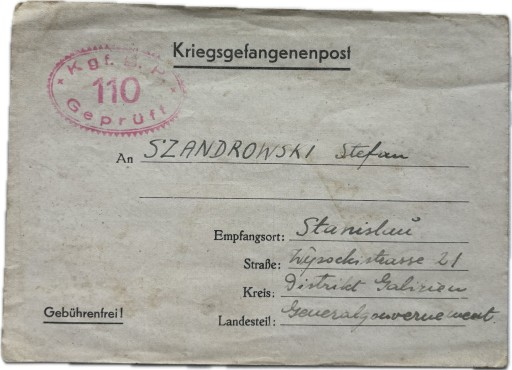 Kriegsgefangenenpost
Kgf. B. P.
110
Geprüft
An SZANDROWSKI Stefan
Empfangsort: Stanislau
Straße: Wysockistrasse 21
Kreis: Distrikt Galizien
Gebührenfrei!
Landesteil: Generalgouvernement.